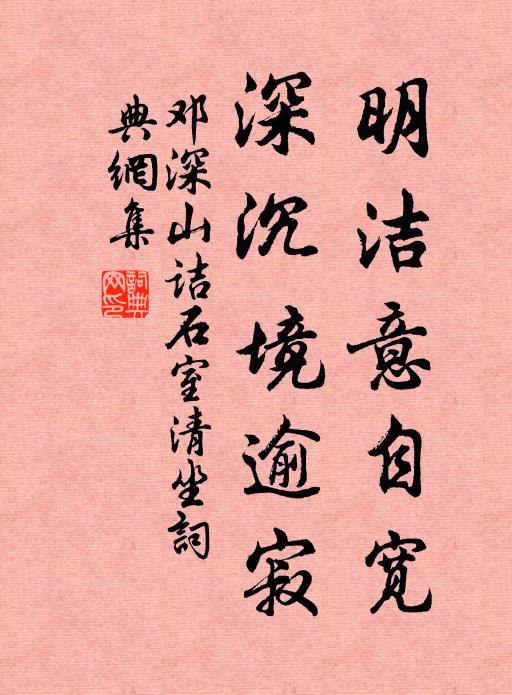 明洁意自宽
深沉境逾寂
邓深山诘石室清坐詞
典網集
詞典网印